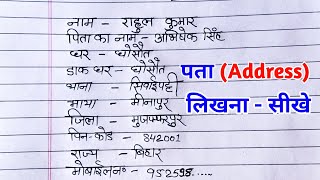 नाम - राहुल कुमार
पिता का नाम - अभिषेक सिंह
घर - धोसौत
डाक घर - धोसौत
थाना - सिवाईपट्टी
भाया - मीनापुर
जिला - मुजफ्फरपुर
पिन-कोड - 842001
राज्य - बिहार
मोबाईल नं० - 952598.....
पता (Address)
लिखना - सीखे